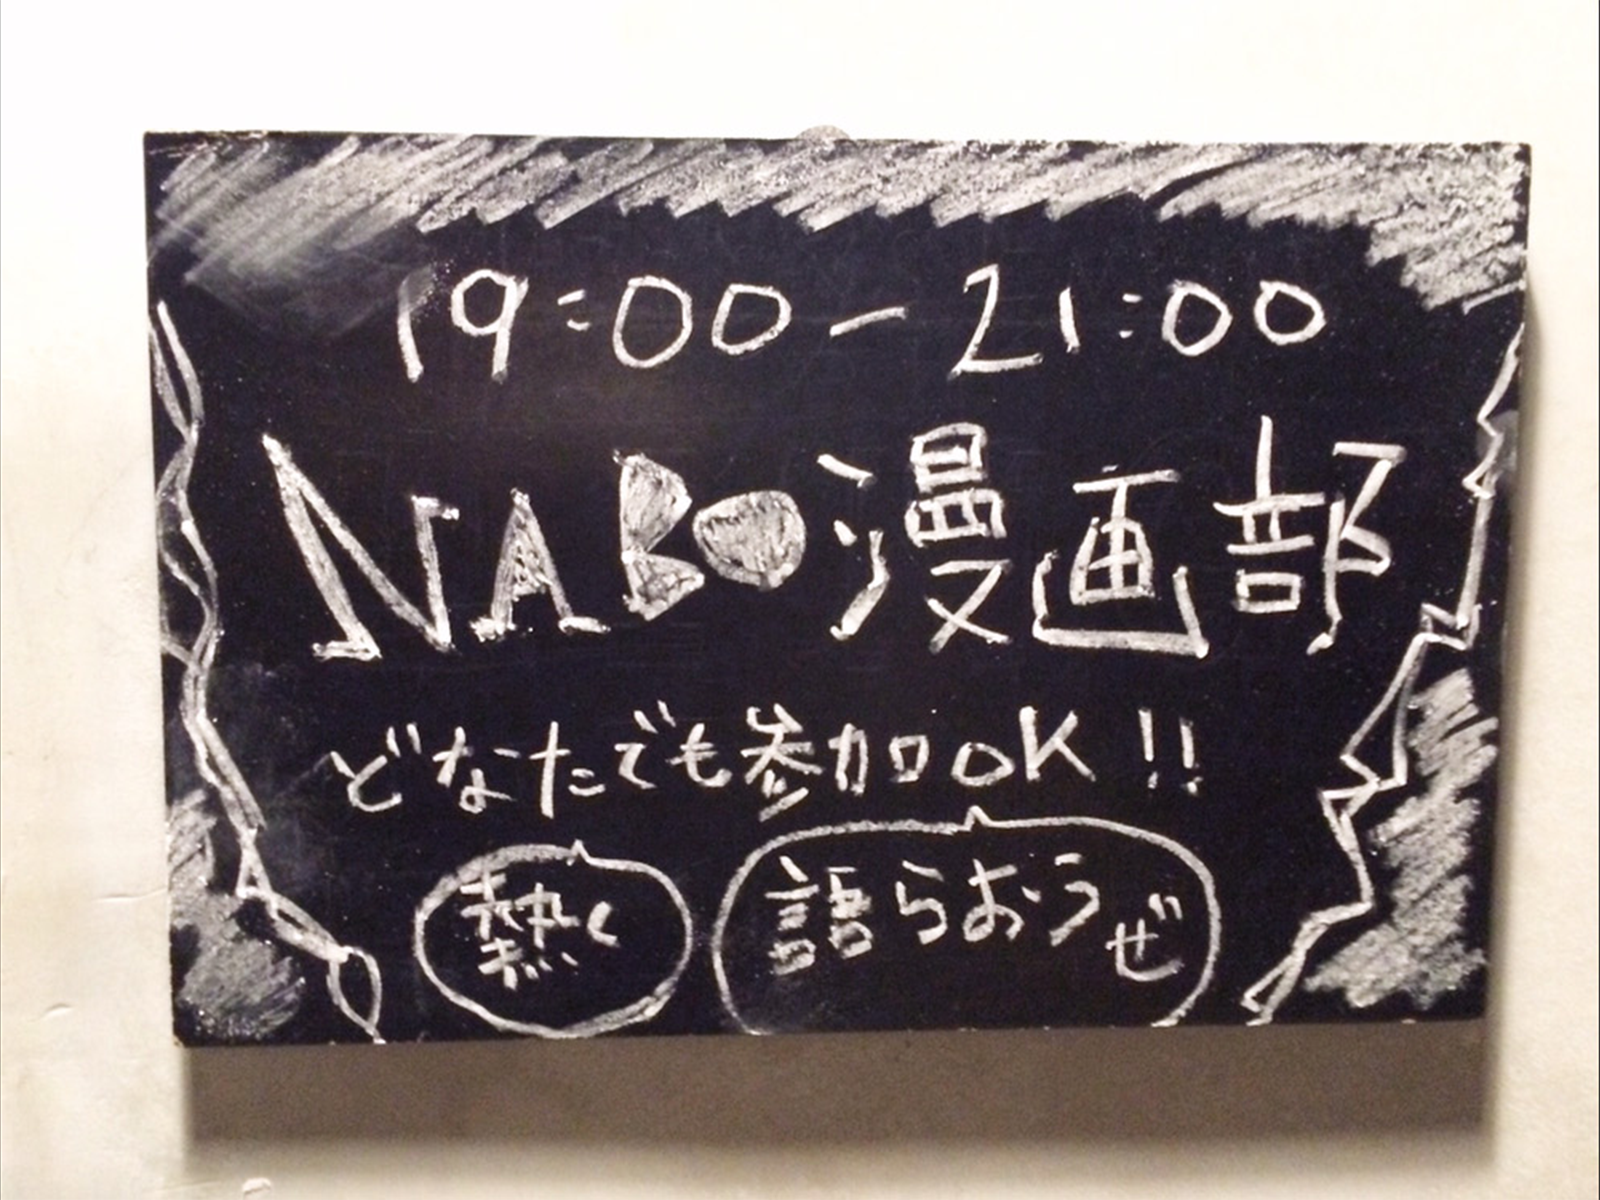 19:00ー21:00
NABO漫画部
どなたでも参加OK!!
熱く
語らおうぜ